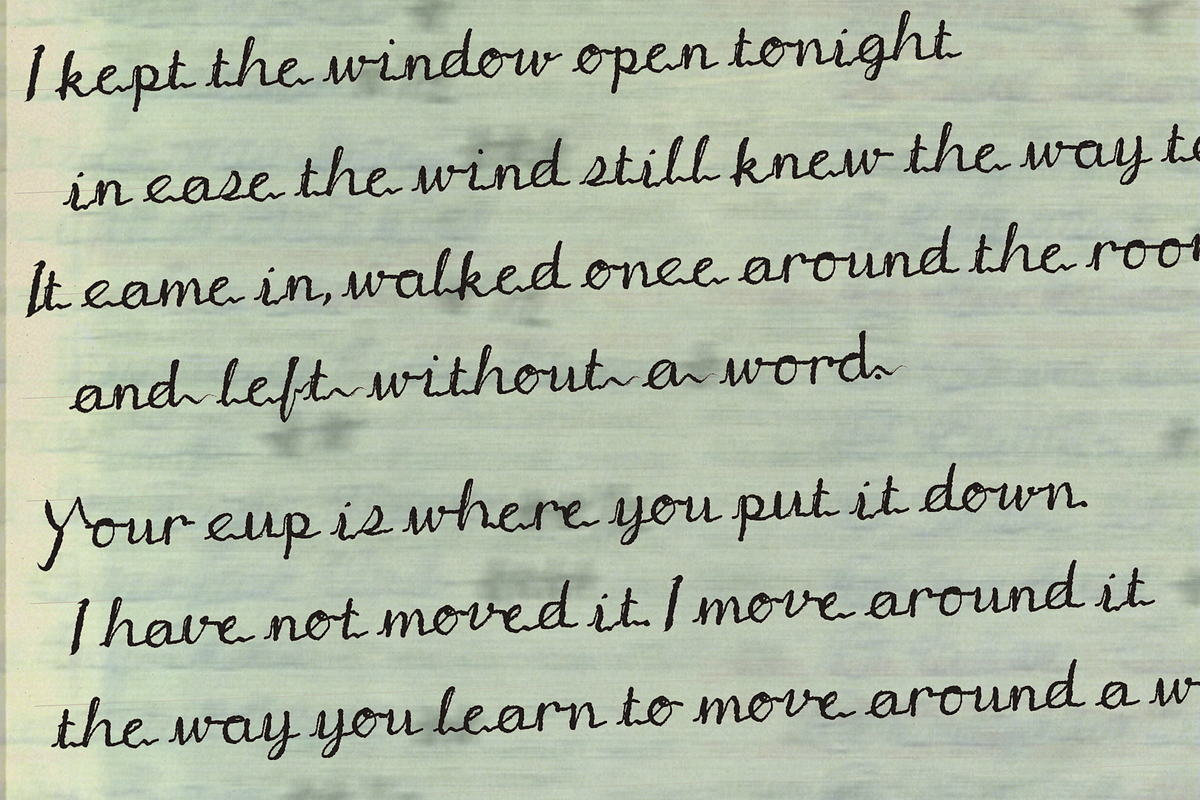 I kept the window open tonight
in case the wind still knew the way
It came in, walked once around the
and left without a word.
Your cup is where you put it down.
I have not moved it. I move around it
the way you learn to move around a